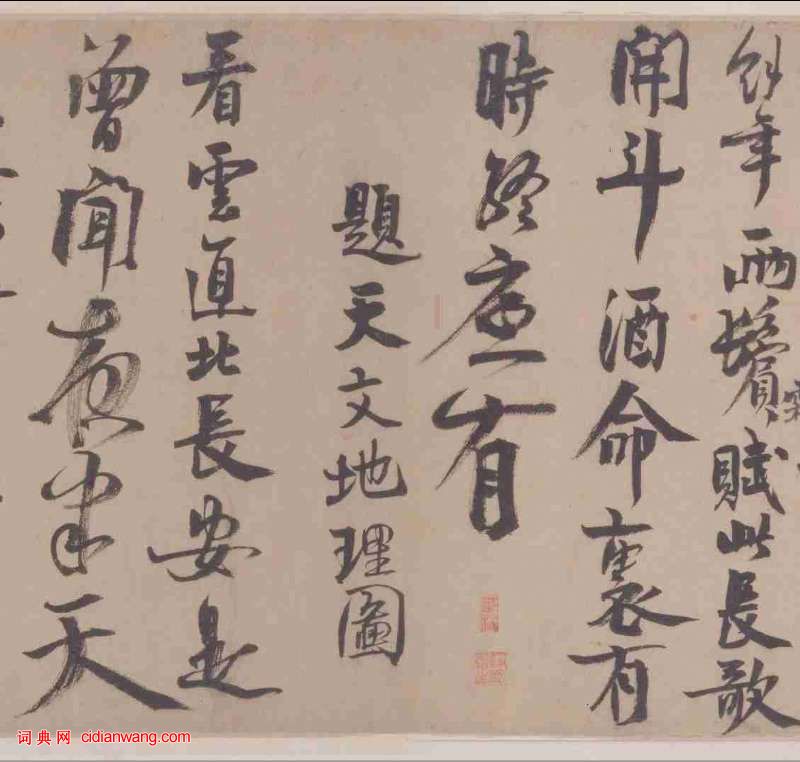 年兩鬢賦此長歌
開斗酒命裏有
時終應有
題天文地理圖
看雲直北長安是
曾聞夜半天
词典网 cidianwang.com